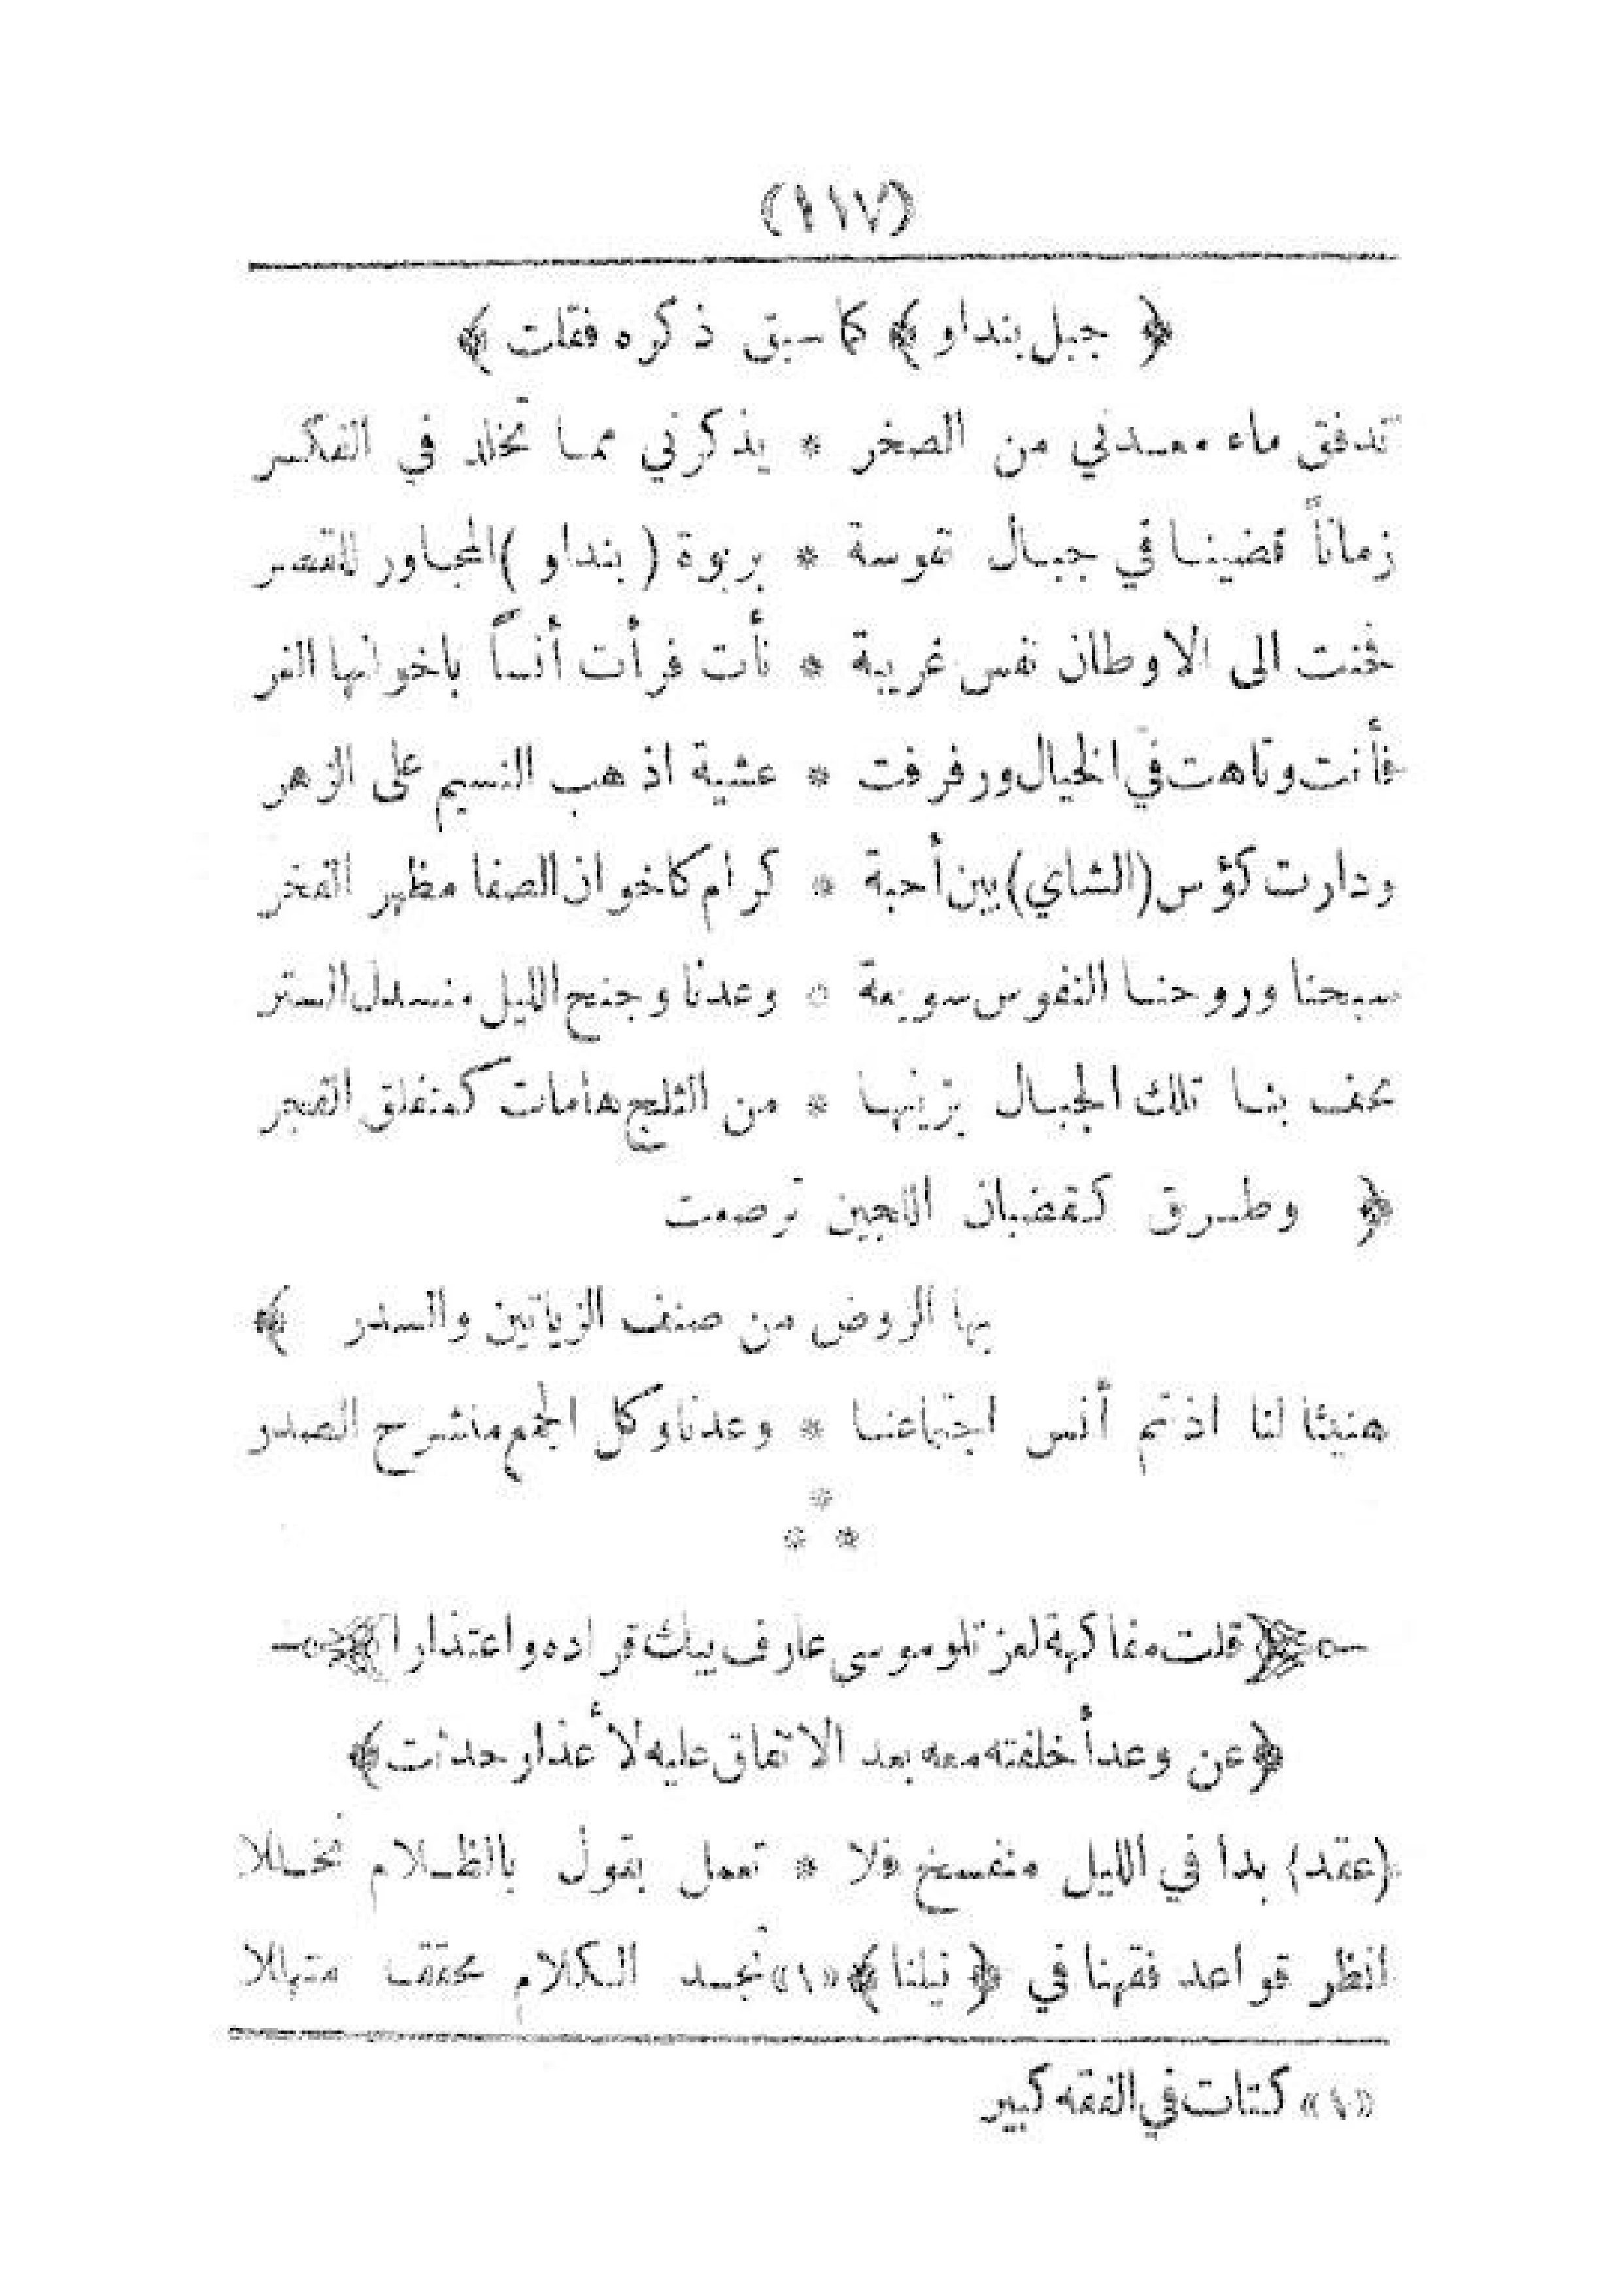 (١١٧)
﴿ جبل بنداو ﴾ كما سبق ذكره فقلت ﴾
تدفق ماء معدني من الصخر * يذكرني مما تخلد في الفكر
زماناً قضينا في جبال نفوسة * بربوة ( بنداو )المجاور للقصر
فحنت الى الاوطان نفس غريبة * نأت فرأت أنساً باخوانها الغر
فأنت وتاهت في الخيال ورفرفت * عشية اذ هب النسيم على الزهر
ودارت كؤس (الشاي) بين أحبة * كرام كاخوان الصفا مظهر الفخر
سبحنا وروحنا النفوس سويعة * وعدنا وجنح الليل منسدل الستر
تحف بنا تلك الجبال يزينها * من الثلج هامات كمنفلق الفجر
﴿ وطرق كقضبان اللجين ترصعت
بها الروض من صنف الزياتين والسدر ﴾
هنيئا لنا اذ تم أنس اجتماعنا * وعدنا وكل الجمع منشرح الصدر
*
* *
﴿قلت مفاكهة لعزتلو موسى عارف بيك قراده واعتذارا﴾
﴿عن وعد أخلفته معه بعد الاتفاق عليه لأعذار حدثت﴾
(عقد) بدا في الليل منفسخ فلا * تعمل بقول بالظلام تخللا
انظر قواعد فقهنا في ﴿ نيلنا ﴾«١» تجد الكلام محققا متهللا
«١» كتات في الفقه كبير